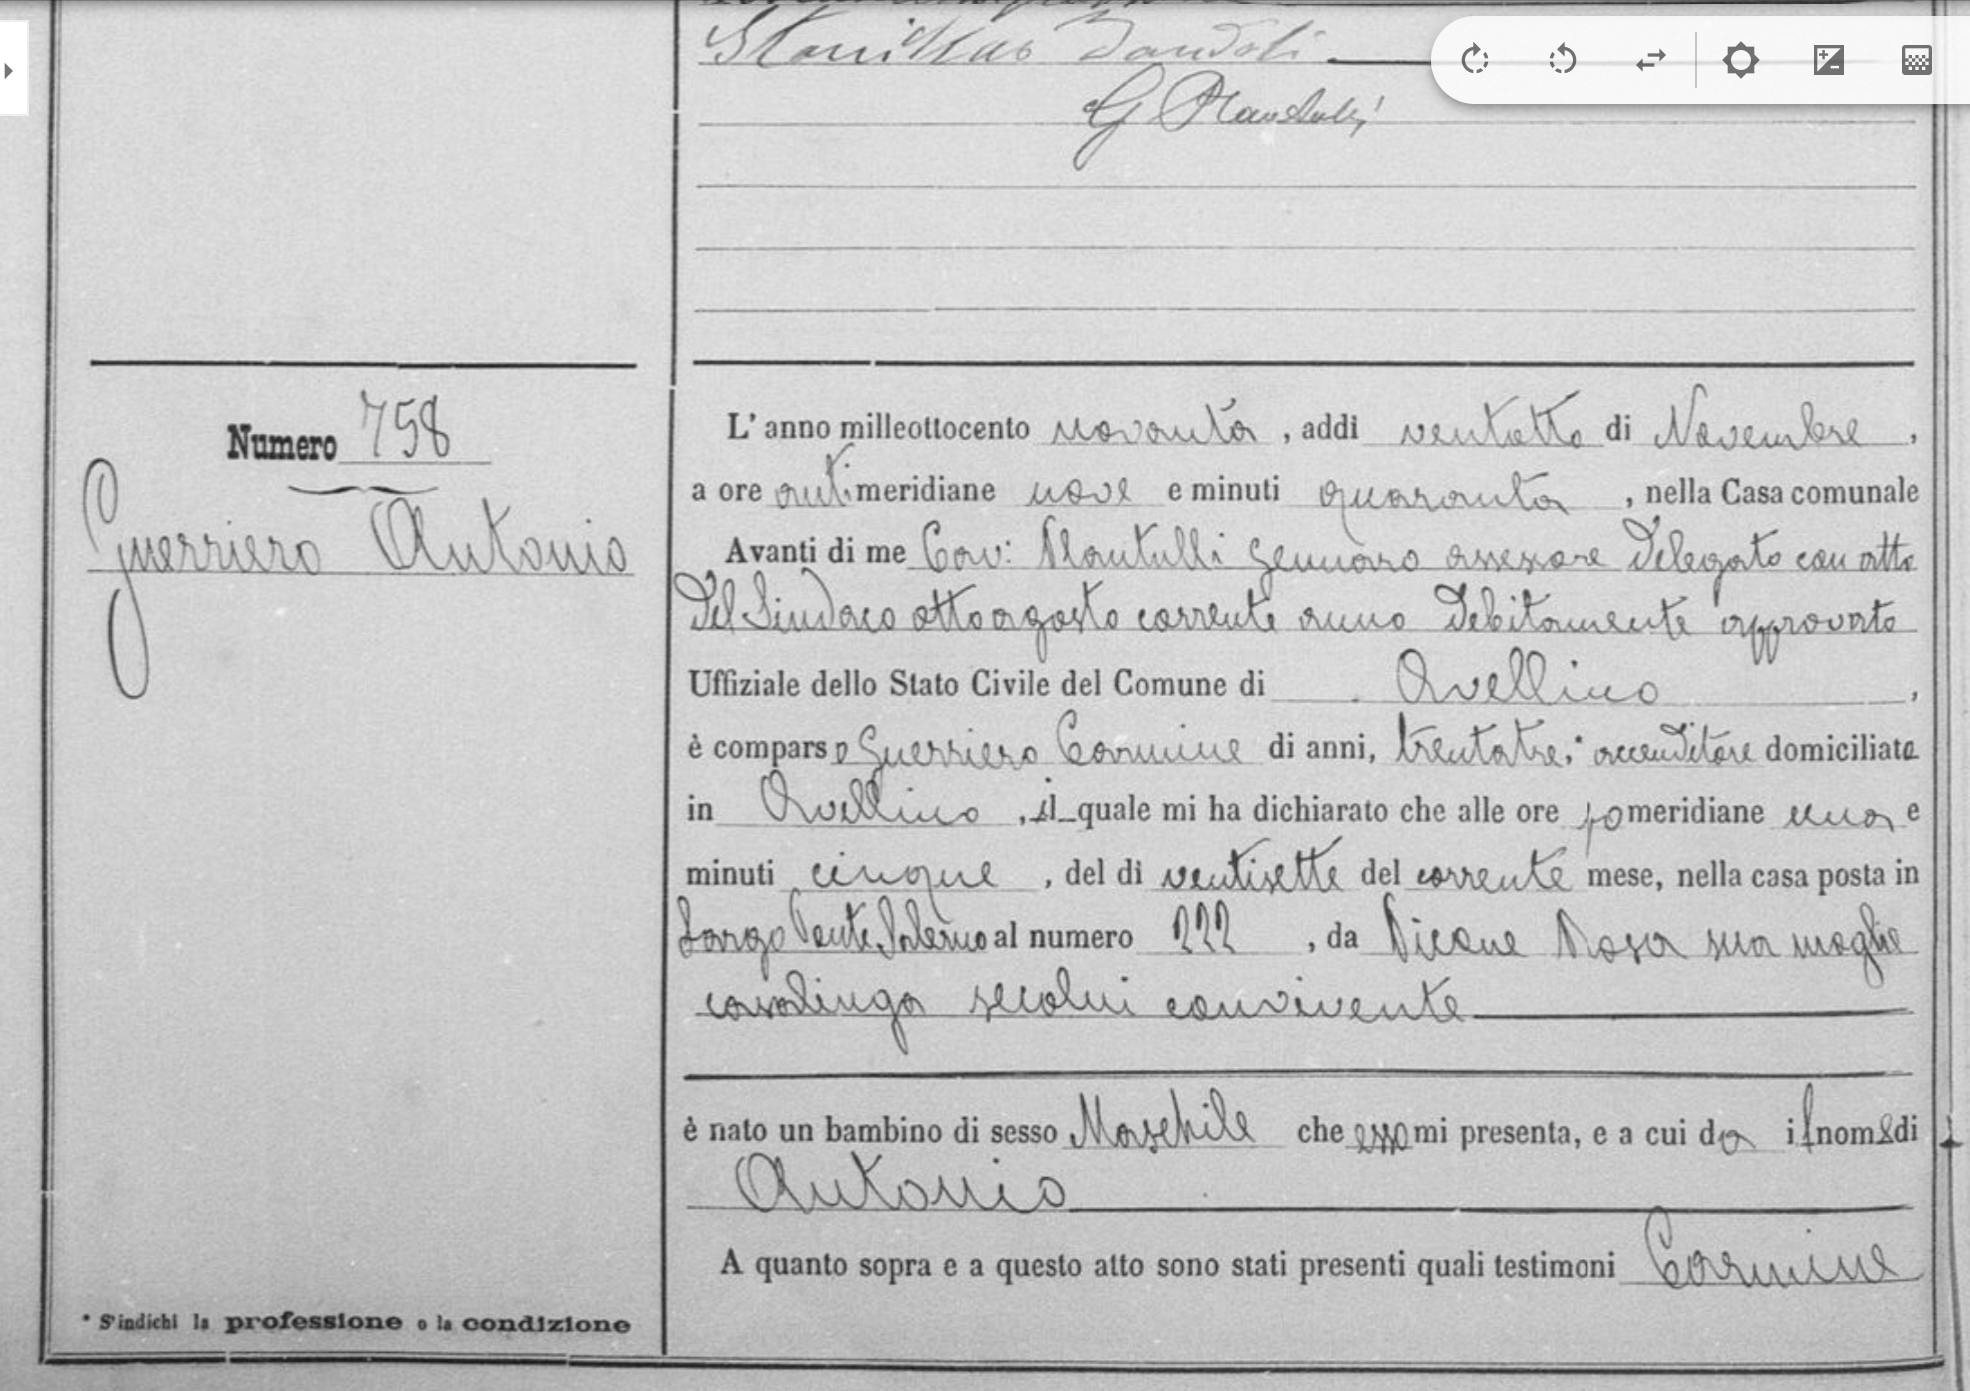 Numero 758
Guerriero Antonio
L'anno milleottocento novanta, addì ventotto di Novembre,
a ore antimeridiane nove e minuti quaranta, nella Casa comunale
Avanti di me Cav: Plantulli Gennaro assessore Delegato con atto
del Sindaco otto agosto corrente anno Debitamente approvato
Uffiziale dello Stato Civile del Comune di Avellino,
è comparso Guerriero Carmine di anni, trentatre,* accenditore domiciliato
in Avellino, il quale mi ha dichiarato che alle ore pomeridiane una e
minuti cinque, del dì ventisette del corrente mese, nella casa posta in
Largo Porta Salerno al numero 222, da Picone Rosa sua moglie
casalinga secolui convivente
è nato un bambino di sesso Maschile che esso mi presenta, e a cui da il nome di
Antonio
A quanto sopra e a questo atto sono stati presenti quali testimoni Carmine
* S'indichi la professione o la condizione